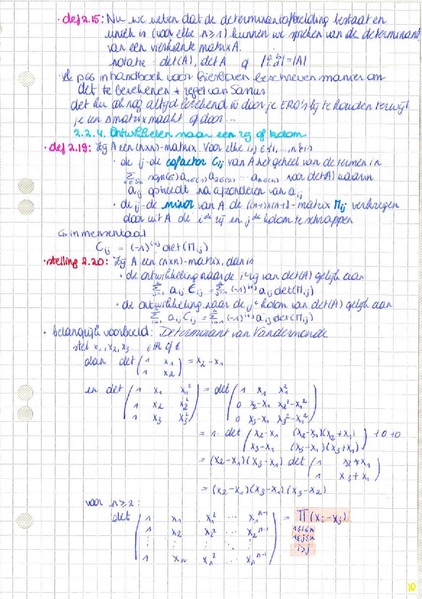 • def 2.15: Nu we weten dat de determinantafbeelding bestaat en
uniek is (voor elke n≥1) kunnen we spreken van de determinant
van een vierkante matrix A.
notatie: det(A), det A of |A|
• de pag in handboek voor hierboven beschreven manier om
det te berekenen + regel van Sarrus
det kan ook nog altijd berekend door je ERO's bij te houden terwijl
je een matrix maakt op door ...
2.2.4. Ontwikkelen naar een rij of kolom
• def 2.19: Zij A een (n×n)-matrix. Voor elke i,j ∈ {1,...,n} is
• de ij-de cofactor Cij van A het geheel van de termen in
det(A) waarin
aij optreedt na afzonderen van aij
• de ij-de minor van A de (n-1)×(n-1)-matrix Mij verkregen
door uit A de i-de rij en j-de kolom te schrappen
Cij = (-1)^(i+j) det(Mij)
• stelling 2.20: Zij A een (n×n)-matrix, dan is
• de ontwikkeling naar de i-de rij van det(A) gelijk aan
Σ aij Cij = Σ (-1)^(i+j) aij det(Mij)
• de ontwikkeling naar de j-de kolom van det(A) gelijk aan
Σ aij Cij = Σ (-1)^(i+j) aij det(Mij)
• belangrijk voorbeeld: Determinant van Vandermonde
stel x1, x2, x3 ...
dan det (1 x1; 1 x2) = x2 - x1
en det (1 x1 x1²; 1 x2 x2²; 1 x3 x3²) = det (1 x1 x1²; 0 x2-x1 x2²-x1²; 0 x3-x1 x3²-x1²)
= 1 · det (x2-x1 (x2-x1)(x2+x1); x3-x1 (x3-x1)(x3+x1)) + 0 + 0
= (x2-x1)(x3-x1) det (1 x2+x1; 1 x3+x1)
= (x2-x1)(x3-x1)(x3-x2)
voor n≥2:
det (1 x1 x1² ... x1^(n-1); 1 x2 x2² ... x2^(n-1); ⋮ ⋮ ⋮ ⋮; 1 xn xn² ... xn^(n-1)) = Π (xi - xj)
1≤i≤n
1≤j≤n
i>j
10